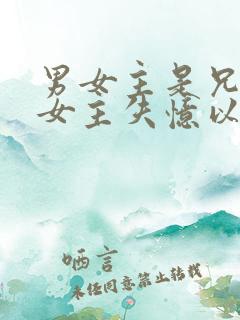 男女主是兄
女主失憶以
哂言
未经同意禁止转载